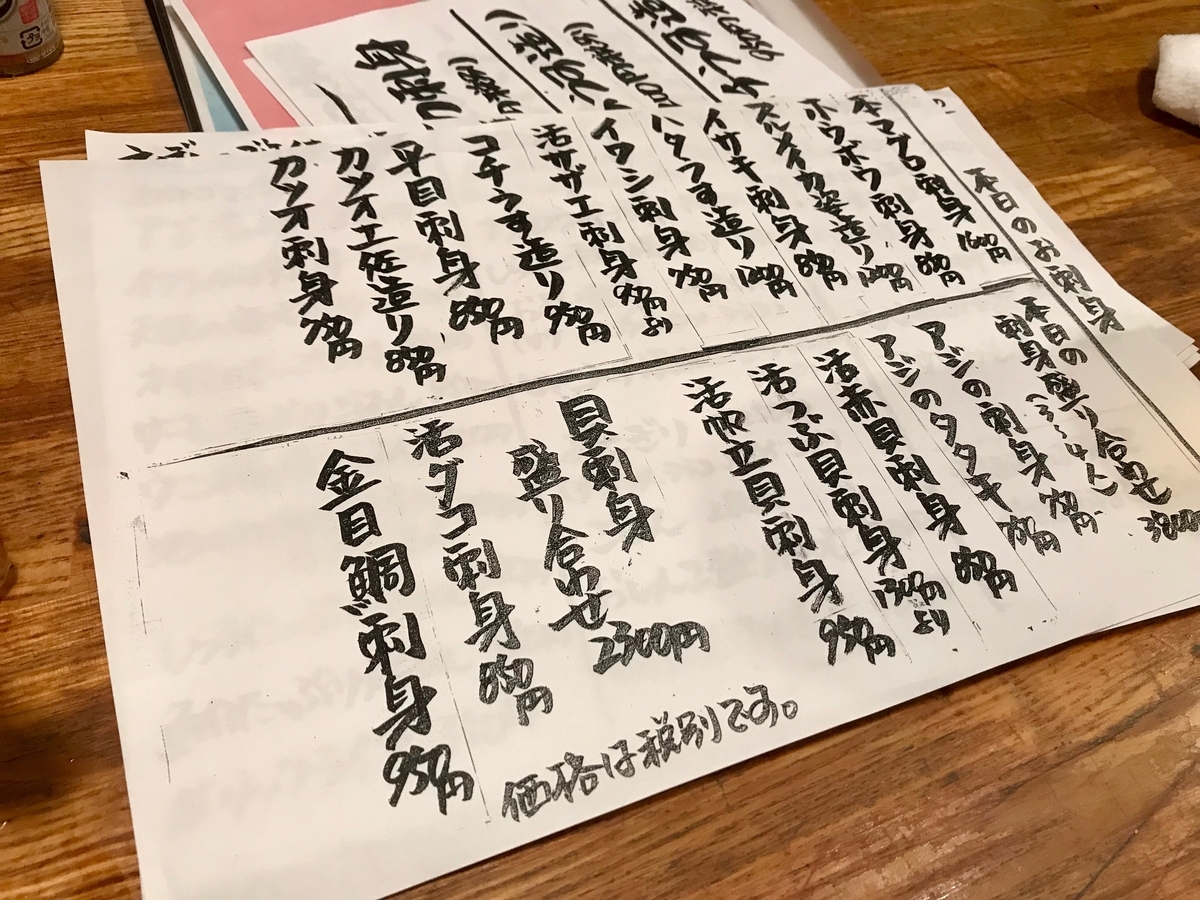 本日のお刺身
本マグロ刺身 1600円
ホウボウ刺身 880円
スルメイカ姿造り 1200円
イサキ刺身 880円
ハタうす造り 1200円
イワシ刺身 780円
活サザエ刺身 980円より
コチうす造り 980円
平目刺身 880円
カツオ土佐造り 880円
カツオ刺身 780円
本日の盛り合わせ
刺身(3~4人) 3800円
アジの刺身 780円
アジのタタキ 780円
活赤貝刺身 880円
活つぶ貝刺身 1300円より
活帆立貝刺身 950円
貝刺身
盛り合わせ 2300円
活ダコ刺身 850円
金目鯛刺身 950円
価格は税別です。